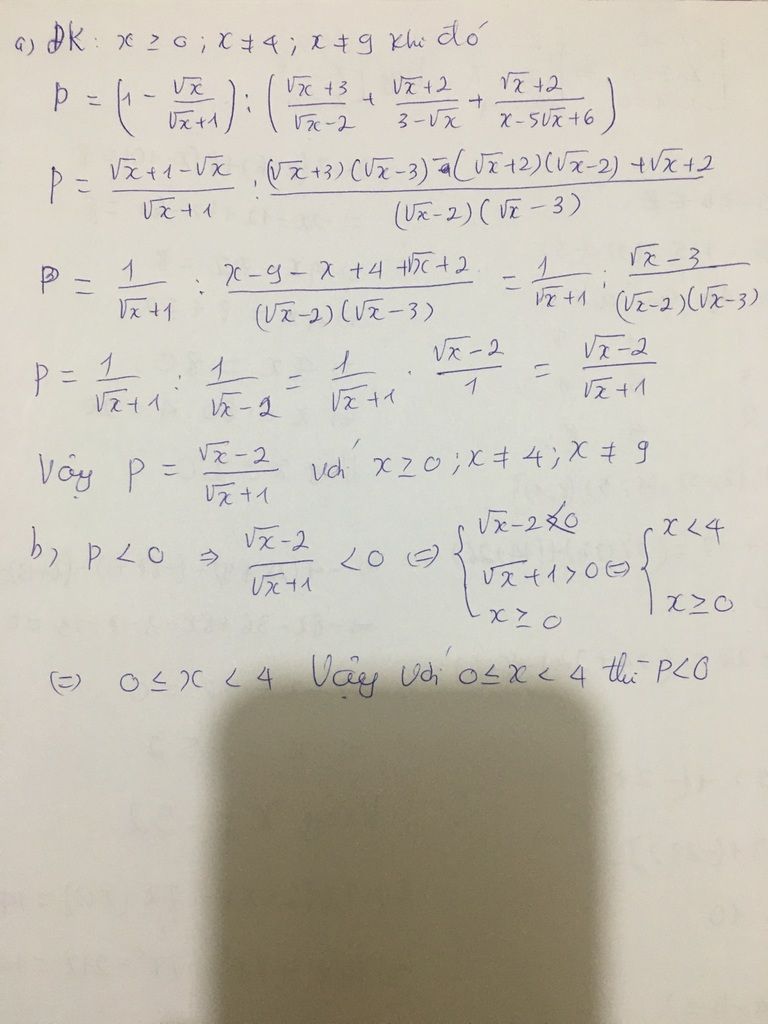 a) ĐK: x ≥ 0 ; x ≠ 4 ; x ≠ 9 khi đó
P = (1 - √x/(√x+1)) : ((√x+3)/(√x-2) + (√x+2)/(3-√x) + (√x+2)/(x-5√x+6))
P = (√x+1-√x)/(√x+1) : ((√x+3)(√x-3) - (√x+2)(√x-2) + √x+2)/((√x-2)(√x-3))
P = 1/(√x+1) : (x-9-x+4+√x+2)/((√x-2)(√x-3)) = 1/(√x+1) : (√x-3)/((√x-2)(√x-3))
P = 1/(√x+1) : 1/(√x-2) = 1/(√x+1) . (√x-2)/1 = (√x-2)/(√x+1)
Vậy P = (√x-2)/(√x+1) với x ≥ 0 ; x ≠ 4 ; x ≠ 9
b) P < 0 ⇒ (√x-2)/(√x+1) < 0 (=) { √x-2 < 0 ; √x+1 > 0 ; x ≥ 0 (=) { x < 4 ; x ≥ 0
(=) 0 ≤ x < 4 Vậy với 0 ≤ x < 4 thì P<0